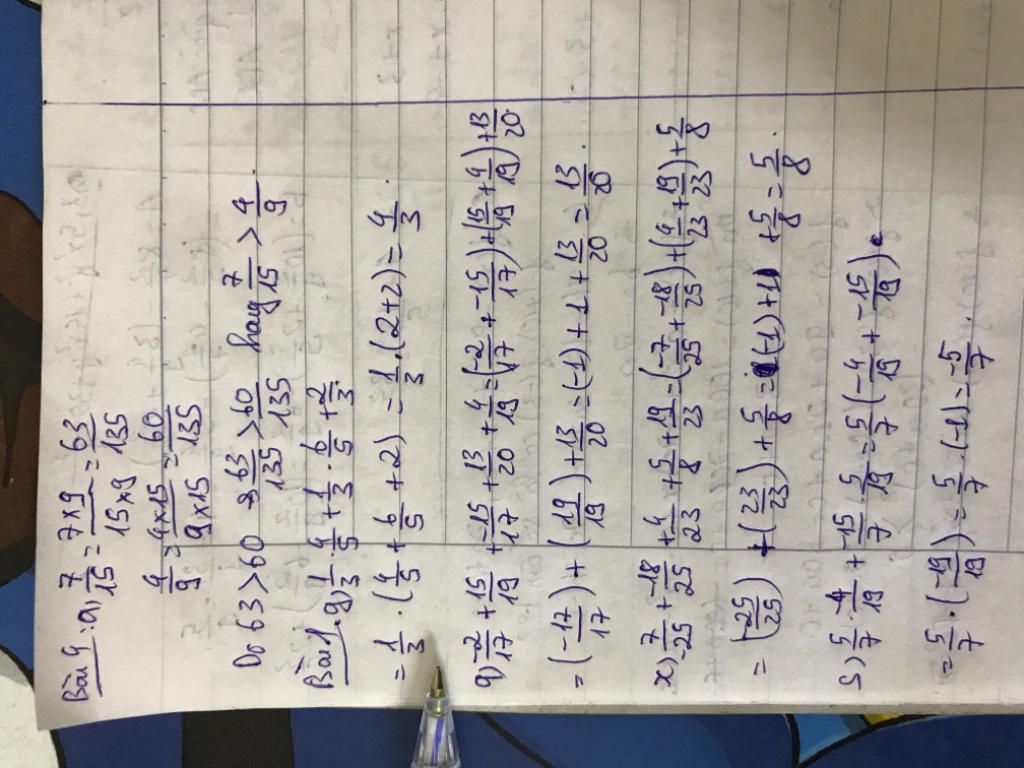 Bài 4: a) 7/15 = 7×9/15×9 = 63/135
4/9 = 4×15/9×15 = 60/135
Do 63 > 60 → 63/135 > 60/135 hay 7/15 > 4/9.
Bài 1. g) 1/3 · 4/5 + 1/3 · 6/5 + 2/3.
= 1/3 · (4/5 + 6/5 + 2) = 1/3 · (2+2) = 4/3.
q) -2/17 + 15/19 + -15/17 + 13/20 + 4/19 = (-2/17 + -15/17) + (15/19 + 4/19) + 13/20
= (-17/17) + (19/19) + 13/20 = (-1) + 1 + 13/20 = 13/20.
x) 7/-25 + -18/25 + 4/23 + 5/8 + 19/23 = (-7/25 + -18/25) + (4/23 + 19/23) + 5/8
= (-25/25) + (23/23) + 5/8 = (-1) + 1 + 5/8 = 5/8.
s) 5/7 · -4/19 + -15/7 · 5/19 = 5/7 (-4/19 + -15/19)
= 5/7 · (-19/19) = 5/7 · (-1) = -5/7.